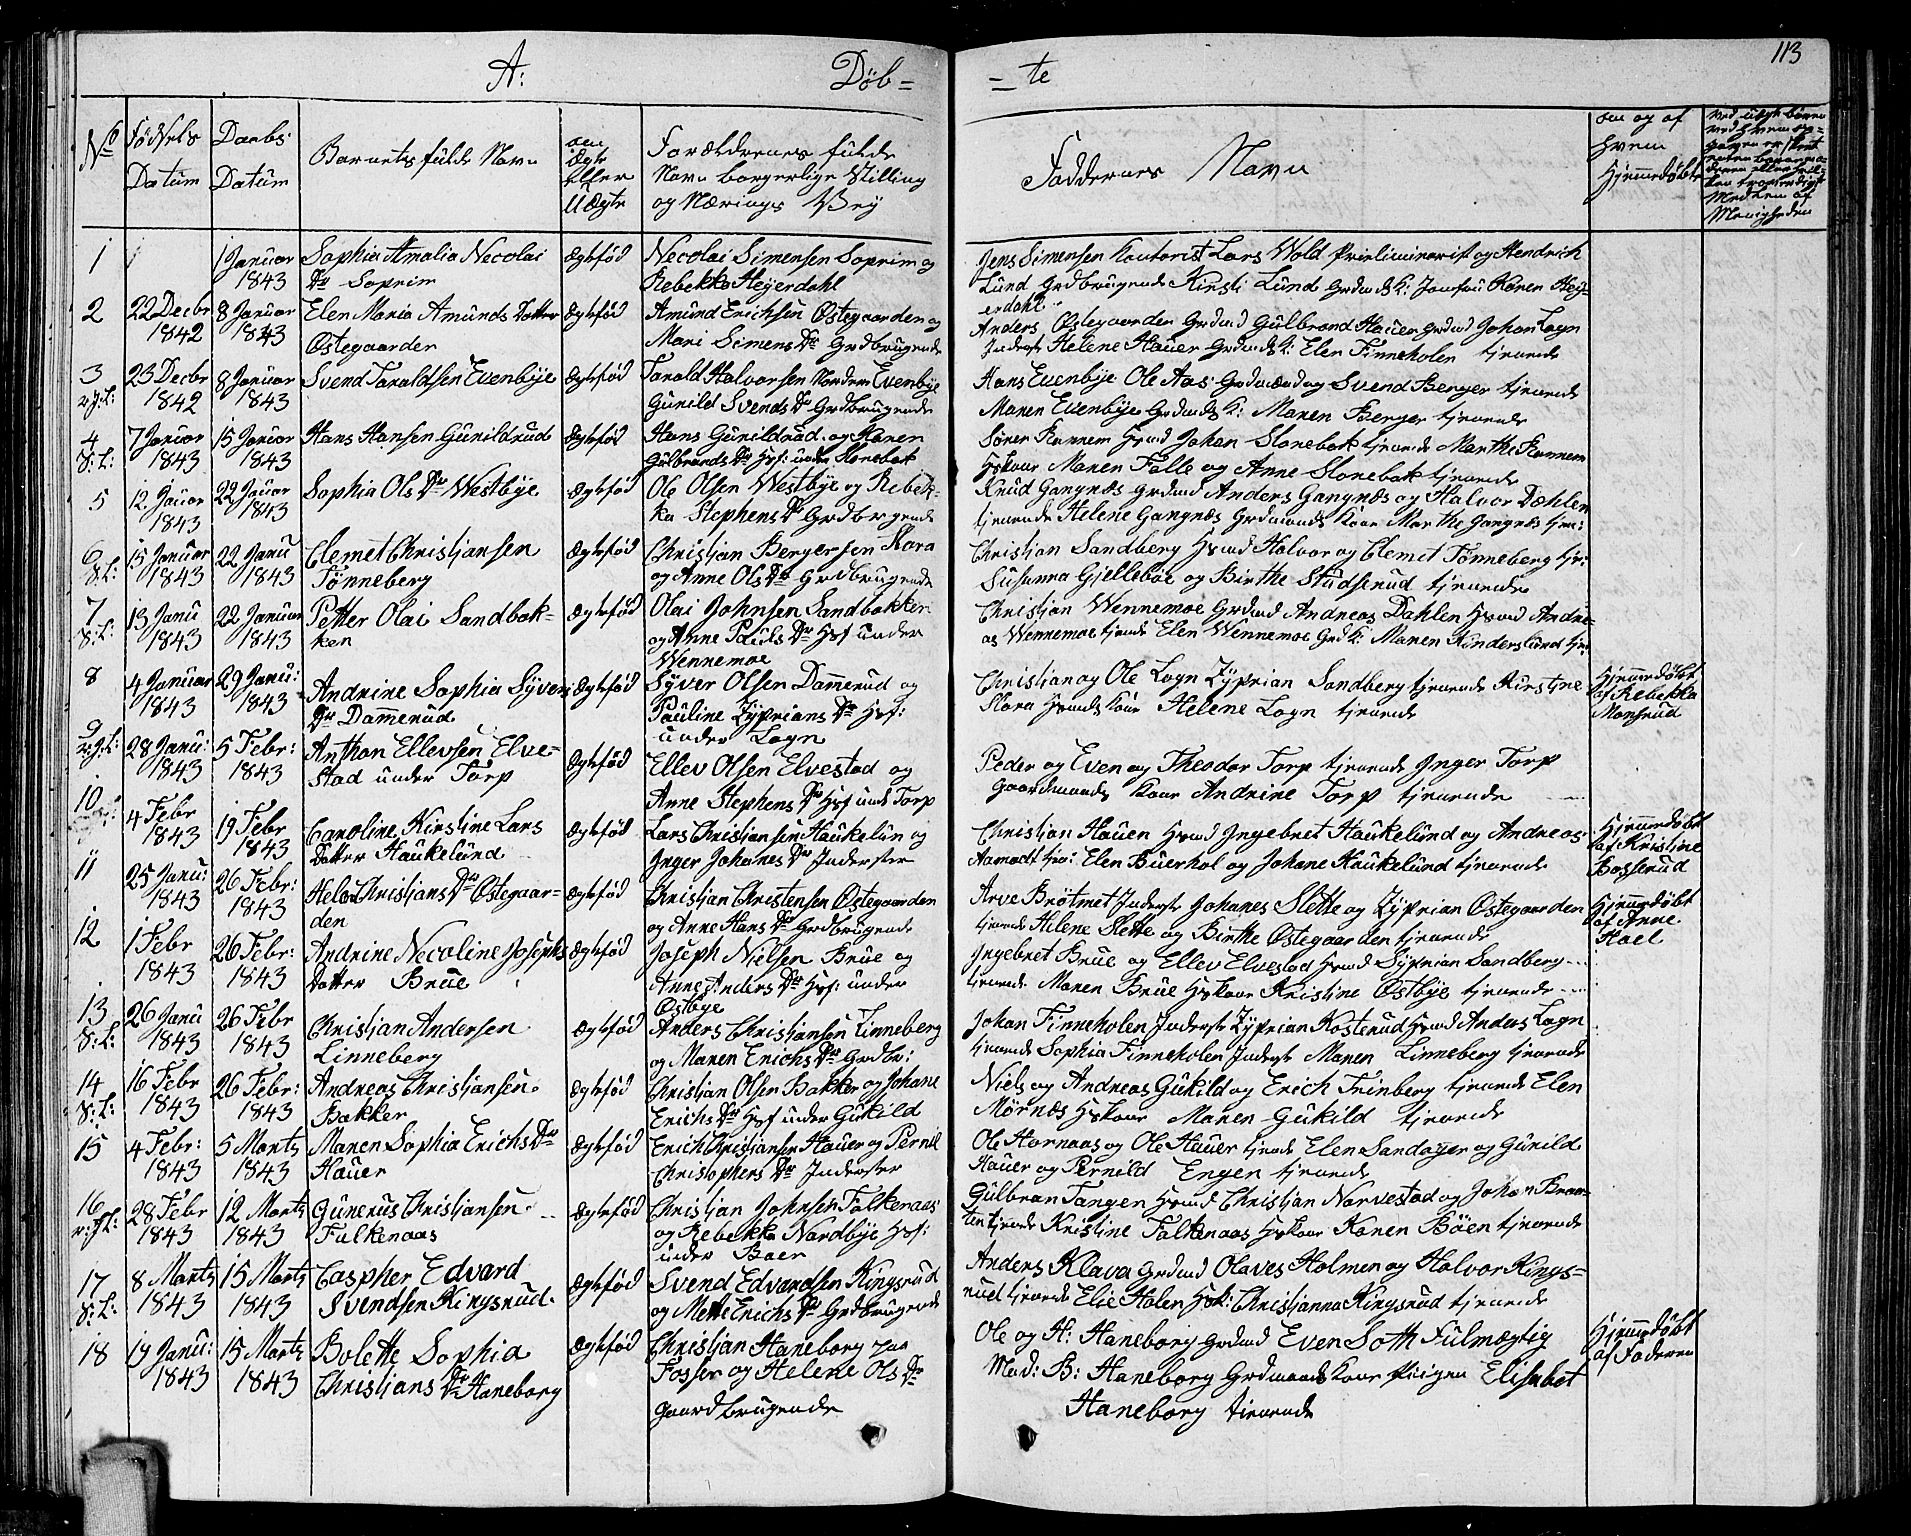 113
A: Døb= =te
No
Fødsels Datum
Daabs Datum
Barnets fulde Navn
om Ægte eller Uægte
Forældrenes fulde Navn borgerlige Stilling og Nærings Vej
Faddernes Navn
om og af hvem Hjemmedøbt
1
1 Januar 1843
Sophia Amalia Necolai Dr Soprim
Ægtefød
Necolai Simensen Soprim og Rebekka Heyerdahl
Jens Simensen Kontorist Lars Wold og Hendrich
Lund Grdbrugende Kirsti Lund Karen Hey-
erdahl
2
22 Decbr 1842
8 Januar 1843
Elen Maria Amunds Datter Østegaarden
Ægtefød
Amund Erichsen Østegaarden og Mari Simens Dr Grdbrugende
Anders Østegaarden Grdmd Gulbrand Hauer Grdmd Johan Logn
Inderst Helene Hauer Grdmds K: Elen Finneholen tjenende
3
23 Decbr 1842
8 Januar 1843
Svend Taraldsen Evenbye
Ægtefød
Tarald Halvorsen Nordern Evenbye
Gunild Svends Dr Grdbrugende
Hans Evenbye Ole Aas Grdmænd og Svend Berger tjenende
Maren Evenbye Grdmds K: Maren Berger tjenende
4
S:L:
7 Januar 1843
15 Januar 1843
Hans Hansen Gunildrud
Ægtefød
Hans Gunildrud og Karen
Gulbrands Dr Hsf: under Slorebak
Sører Rannem Hsmd Johan Slorebak tjenende Marthe Rannem
Hskone Maren Falle og Anne Slorebak tjenende
5
12 Januar 1843
22 Januar 1843
Sophia Ols Dr Westbye
Ægtefød
Ole Olsen Westbye og Rebek-
ka Stephens Dr Grdbrgende
Knud Gangnæs Grdmd Anders Gangnæs og Halvor Dæhlen
tjenende Helene Gangnæs Grdmands Kone Marthe Gangnæs tjen:
6
S:L:
15 Januar 1843
22 Janu 1843
Clemet Christjansen
Tønneberg
Ægtefød
Christjan Bergersen Flora
og Anne Ols Dr Grdbrugende
Christjan Sandberg Hsmd Halvor og Clemet Tønneberg tje:
Susanna Gjellebøe og Birthe Studsrud tjenende
7
S:L:
13 Janu 1843
22 Januar 1843
Petter Olai Sandbak-
ken
Ægtefød
Olai Johnsen Sandbakken
og Anne Pauls Dr Hsf under
Wennemoe
Christjan Wennemoe Grdmd Andreas Dahlen Hsmd Andre-
as Wennemoe tjende Elen Wennemoe Grd K: Maren Kinderslund tje:
8
4 Januar 1843
29 Janu: 1843
Andrine Sophia Syvers
Dr Dammerud
Ægtefød
Syver Olsen Dammerud og
Pauline Zyprians Dr Hsf:
under Logn
Christjan og Ole Logn Zyprian Sandberg tjenende Kirstine
Flora Hsmds Kone Helene Logn tjenende
Hjemmedøbt
af Rebekka
Monsrud
9
28 Janu: 1843
5 Febr: 1843
Anthon Ellevsen Elve-
stad under Torp
Ægtefød
Ellev Olsen Elvestad og
Anne Stephens Dr Hsf und Torp
Peder og Even og Theodor Torp tjenende Inger Torp
Gaardmands Kone Andrine Torp tjenende
10
4 Febr 1843
19 Febr 1843
Caroline Kirstine Lars
Datter Haukelund
Ægtefød
Lars Christjansen Haukelun og
Inger Johanes Dr Inderster
Christjan Hauen Hsmd Ingebret Haukelund og Andreas
Aamodt tje: Elen Buerhol og Johane Haukelund tjenende
Hjemmedøbt
af Kristine
Bosserud
11
25 Janu: 1843
26 Febr: 1843
Helen Christjans Dr Østegaar-
den
Ægtefød
Christjan Christensen Østegaarden
og Anne Hans Dr Grdbrugende
Arve Brøtmet Inderst Johanes Slette og Zyprian Østegaarden
tjenende Helene Slette og Birthe Østegaarden tjenende
Hjemmedøbt
af Anne
Hael
12
1 Febr 1843
26 Febr: 1843
Andrine Necoline Josephs
Datter Brue
Ægtefød
Joseph Nielsen Brue og
Anne Anders Dr Hsf: under
Østbye
Ingebret Brue og Ellev Elvestad Hsmd Syprian Sandberg
tjenende Maren Brue Hskone Kristine Østbye tjenende
13
S:L:
26 Janu 1843
26 Febr 1843
Christjan Andersen
Linneberg
Ægtefød
Anders Christjansen Linneberg
og Maren Erichs Dr Grdbr:
Johan Finneholen Inderst Zyprian Kosterud Hsmd Anders Logn
tjenende Sophia Finneholen Inderst Maren Linneberg tjenende
14
S:L:
16 Febr 1843
26 Febr: 1843
Andreas Christjansen
Bakker
Ægtefød
Christjan Olsen Bakker og Johane
Erichs Dr Hsf under Gukild
Niels og Andreas Gukild og Erich Trinberg tjenende Elen
Mørnæs Hskone Maren Gukild tjenende
15
4 Febr: 1843
5 Martz 1843
Maren Sophia Erichs Dr
Hauer
Ægtefød
Erich Christjansen Hauer og Pernil
Christophers Dr Inderster
Ole Hornaas og Ole Hauer tjende Elen Sandager og Gunild
Hauer og Pernild Engen tjenende
16
28 Febr 1843
12 Martz 1843
Gunerus Christjansen
Falkenaas
Ægtefød
Christjan Johnsen Falkenaas
og Rebekka Nordbye Hsf:
under Boer
Gulbran Tangen Hsmd Christjan Narvestad og Johan Braa-
ten tjende Kristine Falkenaas Hskone Karen Bøen tjenende
17
S:L:
8 Martz 1843
15 Martz 1843
Caspher Edvard
Svendsen Kingsrud
Ægtefød
Svend Edvardsen Kingsrud
og Mette Erichs Dr Grdbrugende
Anders Klava Grdmd Olaves Holmen og Halvor Kings=
rud tjenende Elie Holen Hsk: Christjanna Kingsrud tjenende
18
19 Janu: 1843
15 Martz 1843
Bolette Sophia
Christjans Dr Haneborg
Ægtefød
Christjan Haneborg paa
Fosser og Helene Ols Dr
Gaardbrugende
Ole og H: Haneborg Grdmd Even Soth Fulmægtig
Mad: B: Haneborg Grdmands Kone Pigen Elisabet
Haneborg tienende
Hjemmedøbt
af Faderen